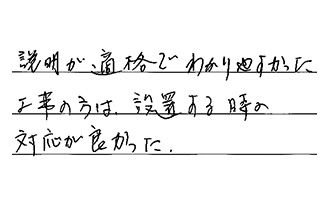 説明が、適格でわかり過すかった
工事の方は、設置する時の
対応が良かった.